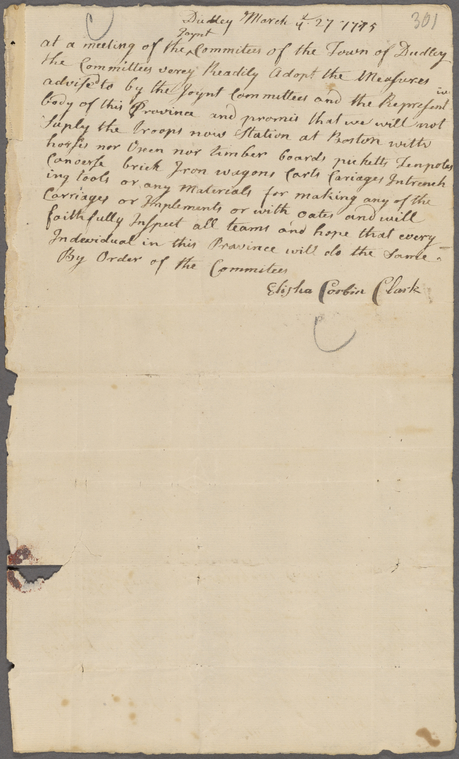 301
Dudley March ye 27 1775
at a meeting of the Joynt Committes of the Town of Dudley
the Committees vorey Readily Adopt the Measures
advise to by the Joynt Committees and the Represent ive
body of this Province and promis that we will not
Suply the Troops now Station at Boston with
horses nor Oxen nor timber boards picketts Tenpoles
Canverse brick Iron wagons Carts Cariages Intrench
ing tools or any Materials for making any of the
Carriages or Implements or with oates and will
faithfully Inspect all teams and hope that every
Indevidual in this Province will do the Same
By Order of the Commitees
Elisha Corbin Clark